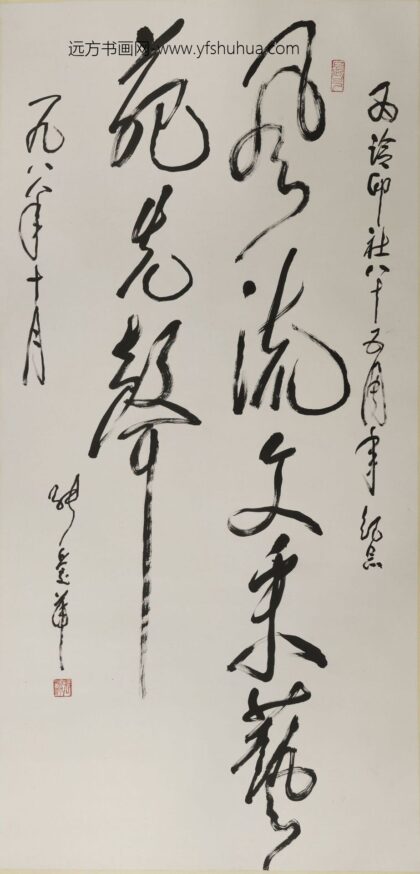 远方书画网:www.yfshuhua.com
西泠印社八十五周年纪念
風流文采藝
苑先聲
一九八八年十月
张爱萍